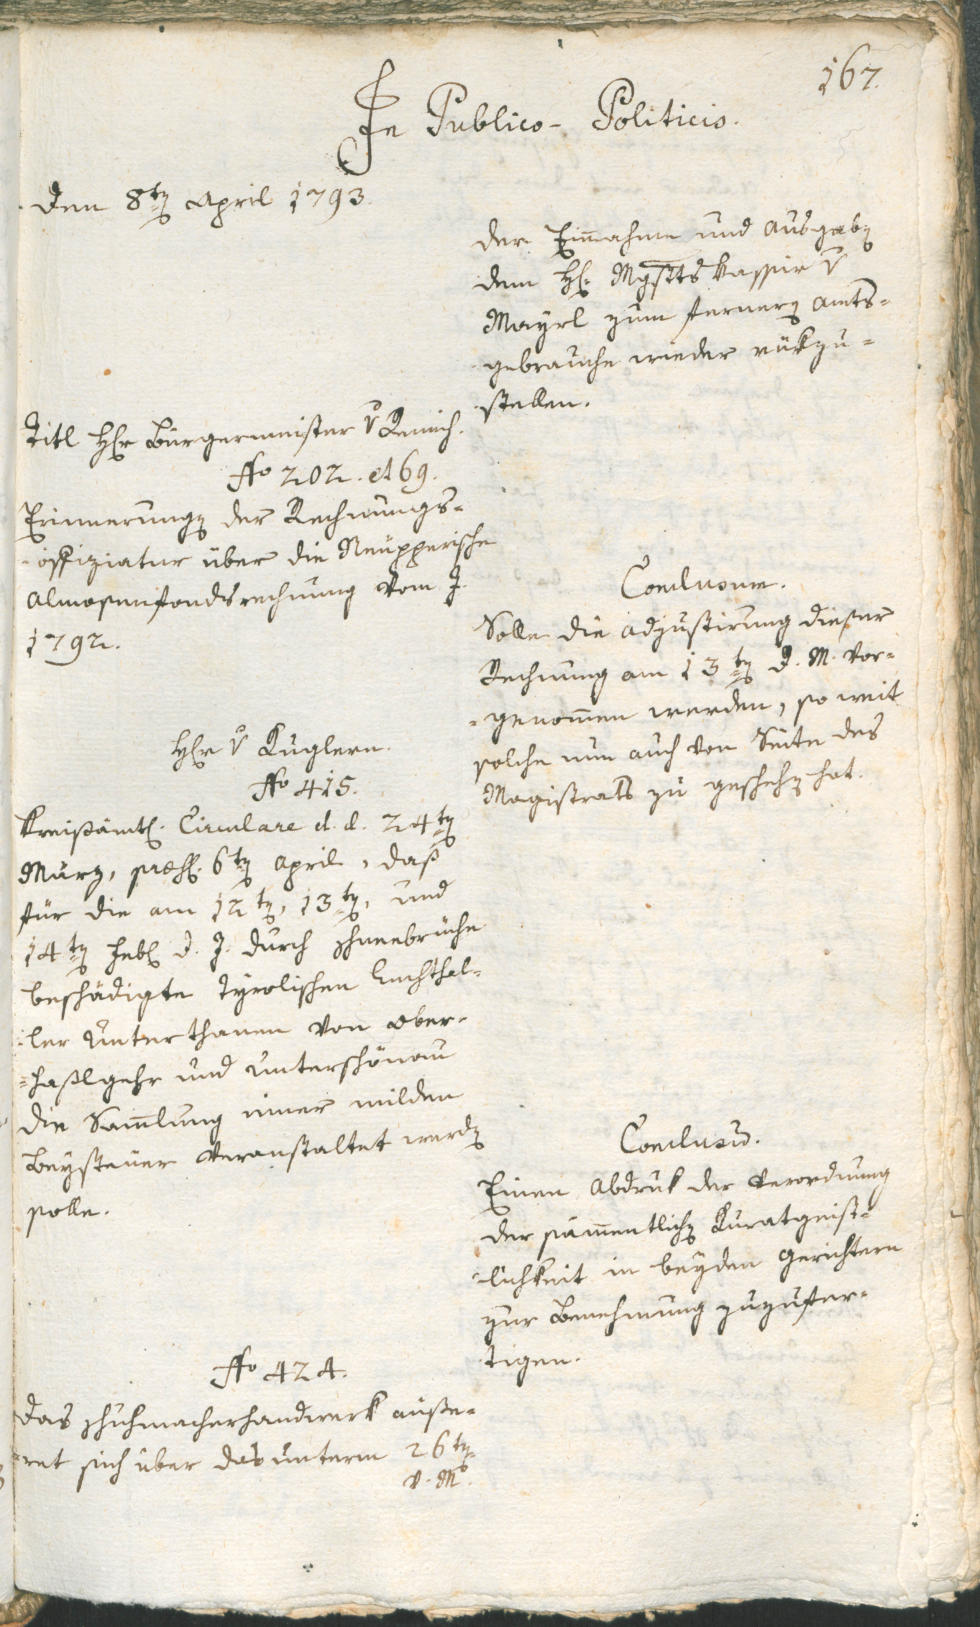 167.
In Publico-Politicis.
Den 8ten April 1793.
Titl Herr Bürgermeister v
No 202. et 69.
Erinnerungen der Rechnungs-
offiziatur über die
Almosenfondsrechnung vom J.
1792.
Herr v Kuglern.
No 415.
Kreisämtl. Circulare d. d. 24ten
März, praes. 6ten April, daß
für die am 12ten, 13ten, und
14ten Feb. d. J. durch Schneebrüche
beschädigte tyrolischen Lechthal-
ler Unterthanen von Ober-
haslgehr und Unterschönau
die Samlung einer milden
Beysteuer veranstaltet werden
solle.
No 424.
Das Schuhmacherhandwerk äuße-
ret sich über das unterm 26ten
v. M.
der Einnahme und Ausgaben
dem H. Mgstrts Kassier v
Mayrl zum fernern Amts-
gebrauche wieder rükzu-
stellen.
Conclusum.
Solle die Adjustirung dieser
Rechnung am 13ten d. M. vor-
genomen werden, so weit
solche nun auch von Seite des
Magistrats zu geschehen hat.
Conclusum.
Einen Abdruk der Verordnung
der sämentlichen Kuratgeist-
lichkeit in beyden Gerichtern
zur Benehmung zuzufer-
tigen.